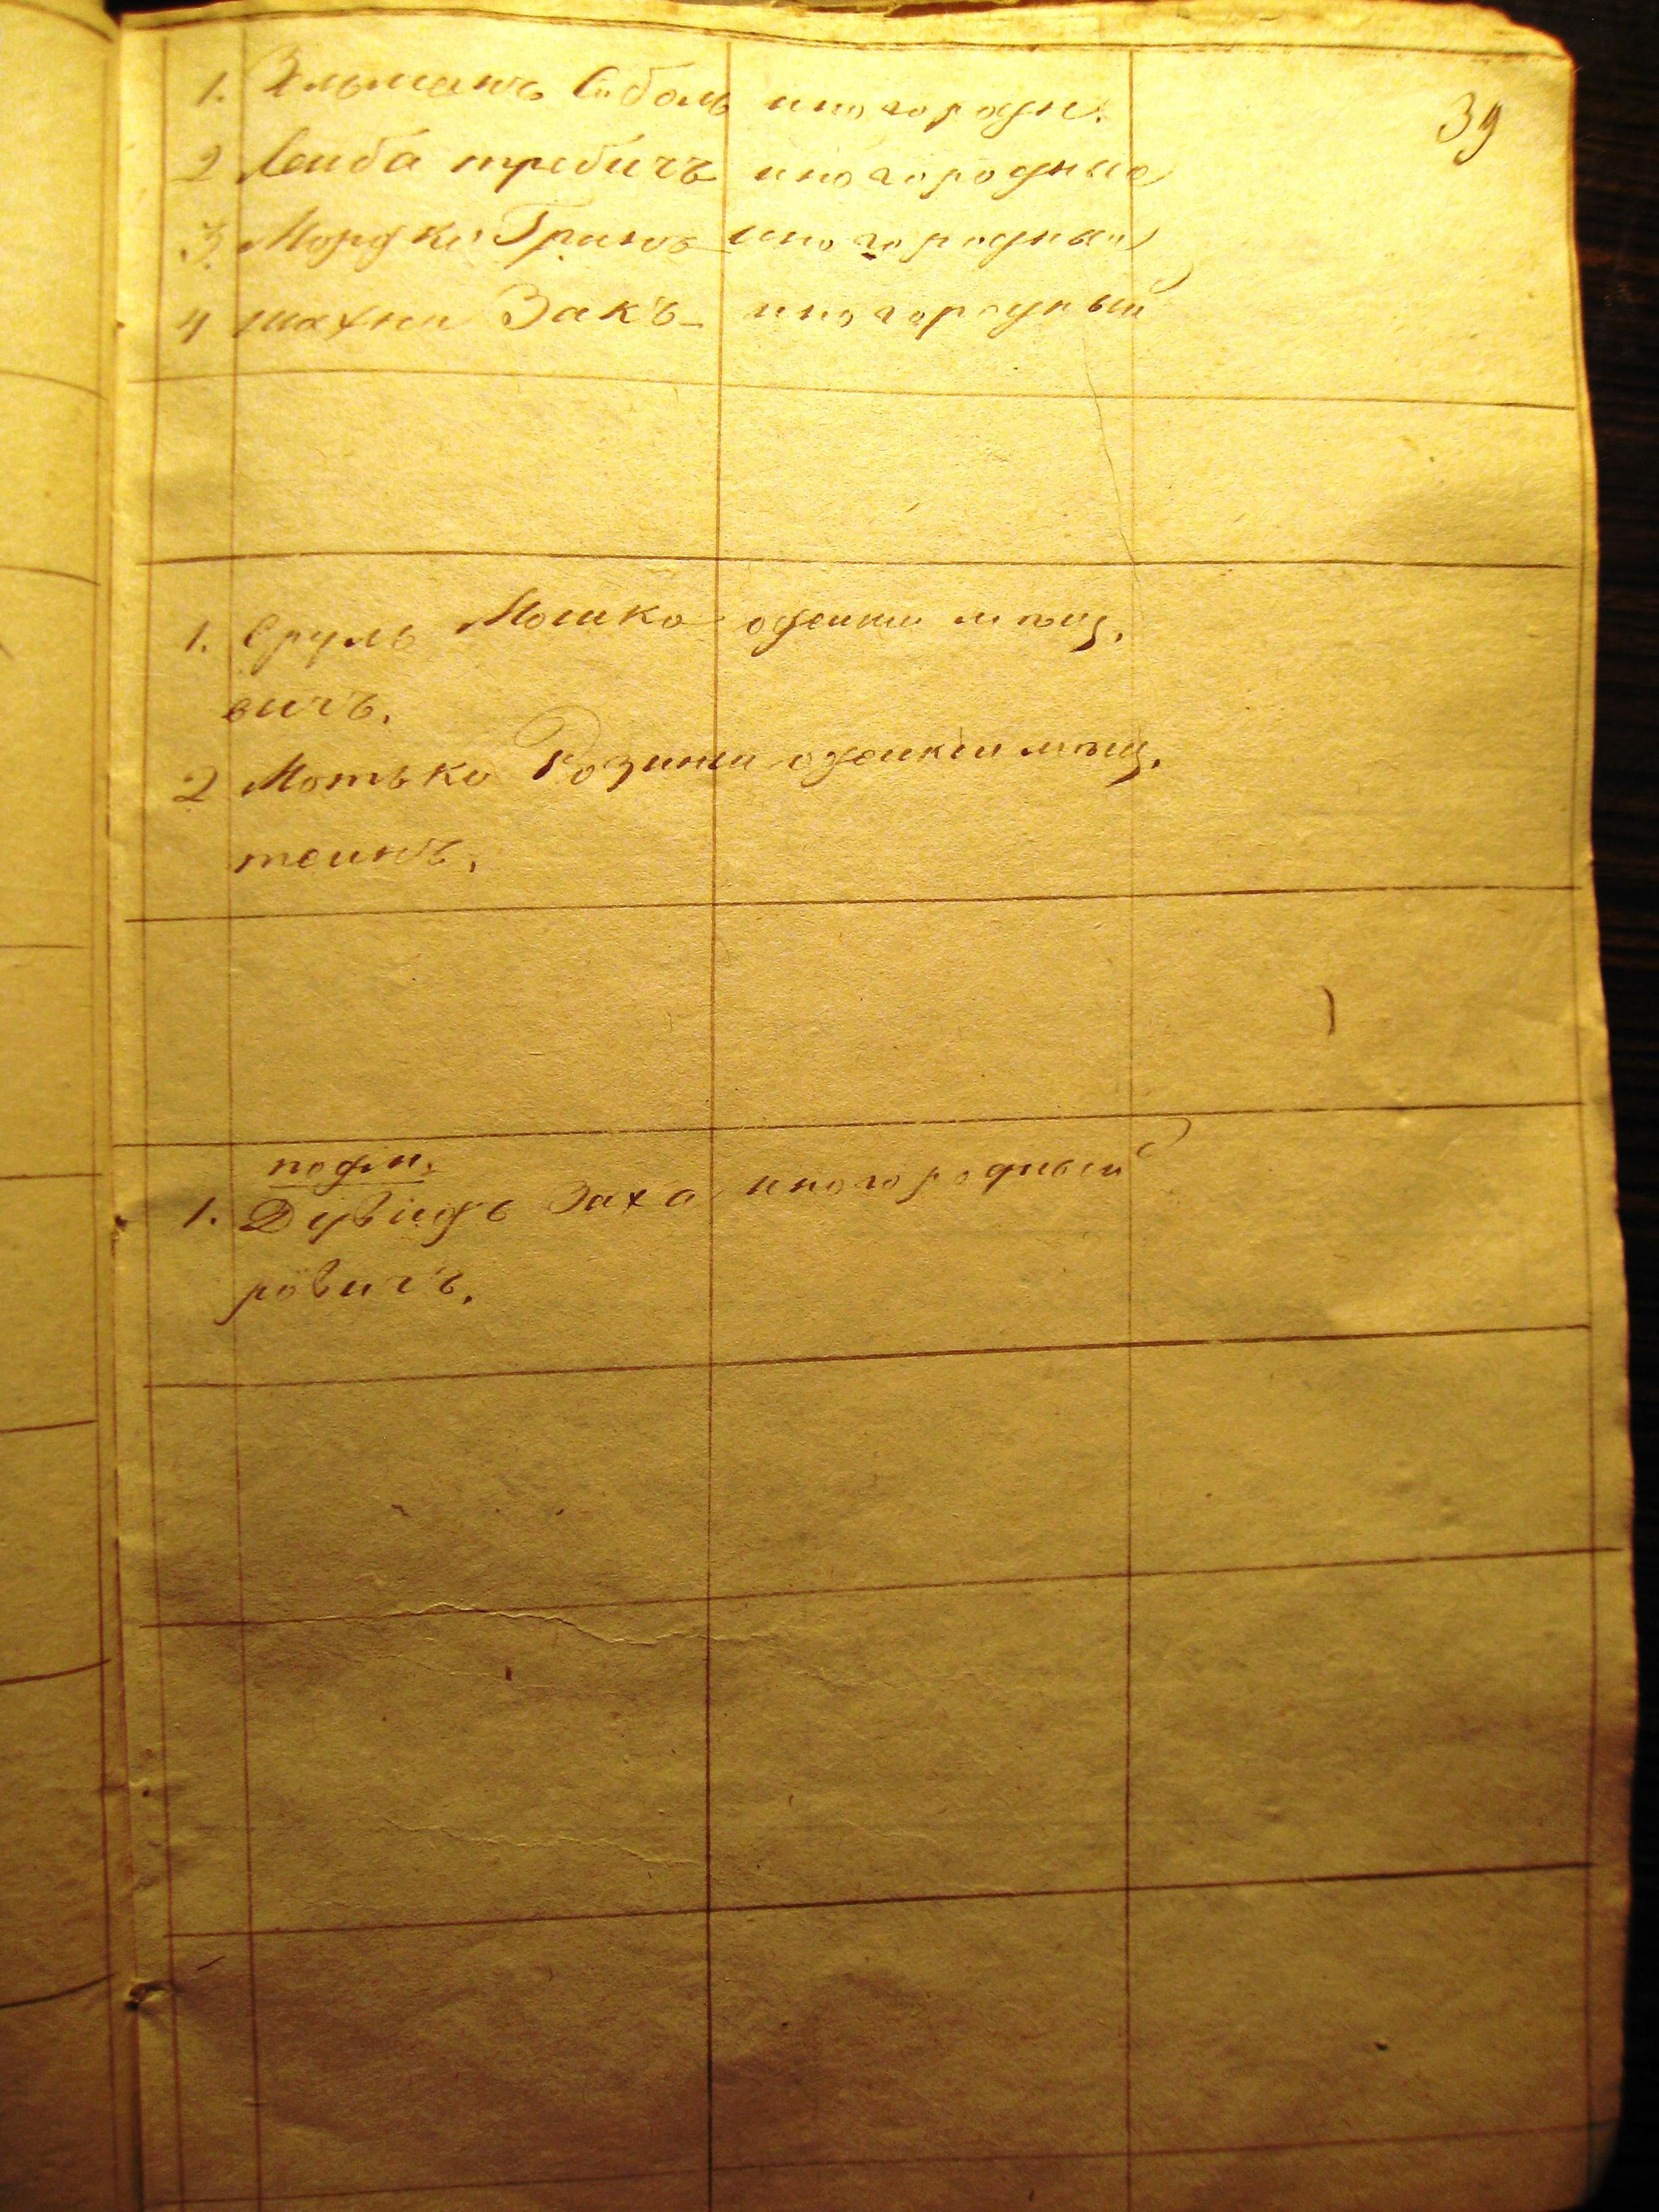 39
1. Зельманъ Соболь иногородн.
2 Лейба требичъ иногородный
3. Мордко Гринъ иногородный
4 шахна Закъ иногородный
1. Сруль Мошко одески мѣщ.
вичъ.
2 Мотько Розинш одески мѣщ.
теинъ.
1. Дувидъ Заха иногородный
ровичъ.